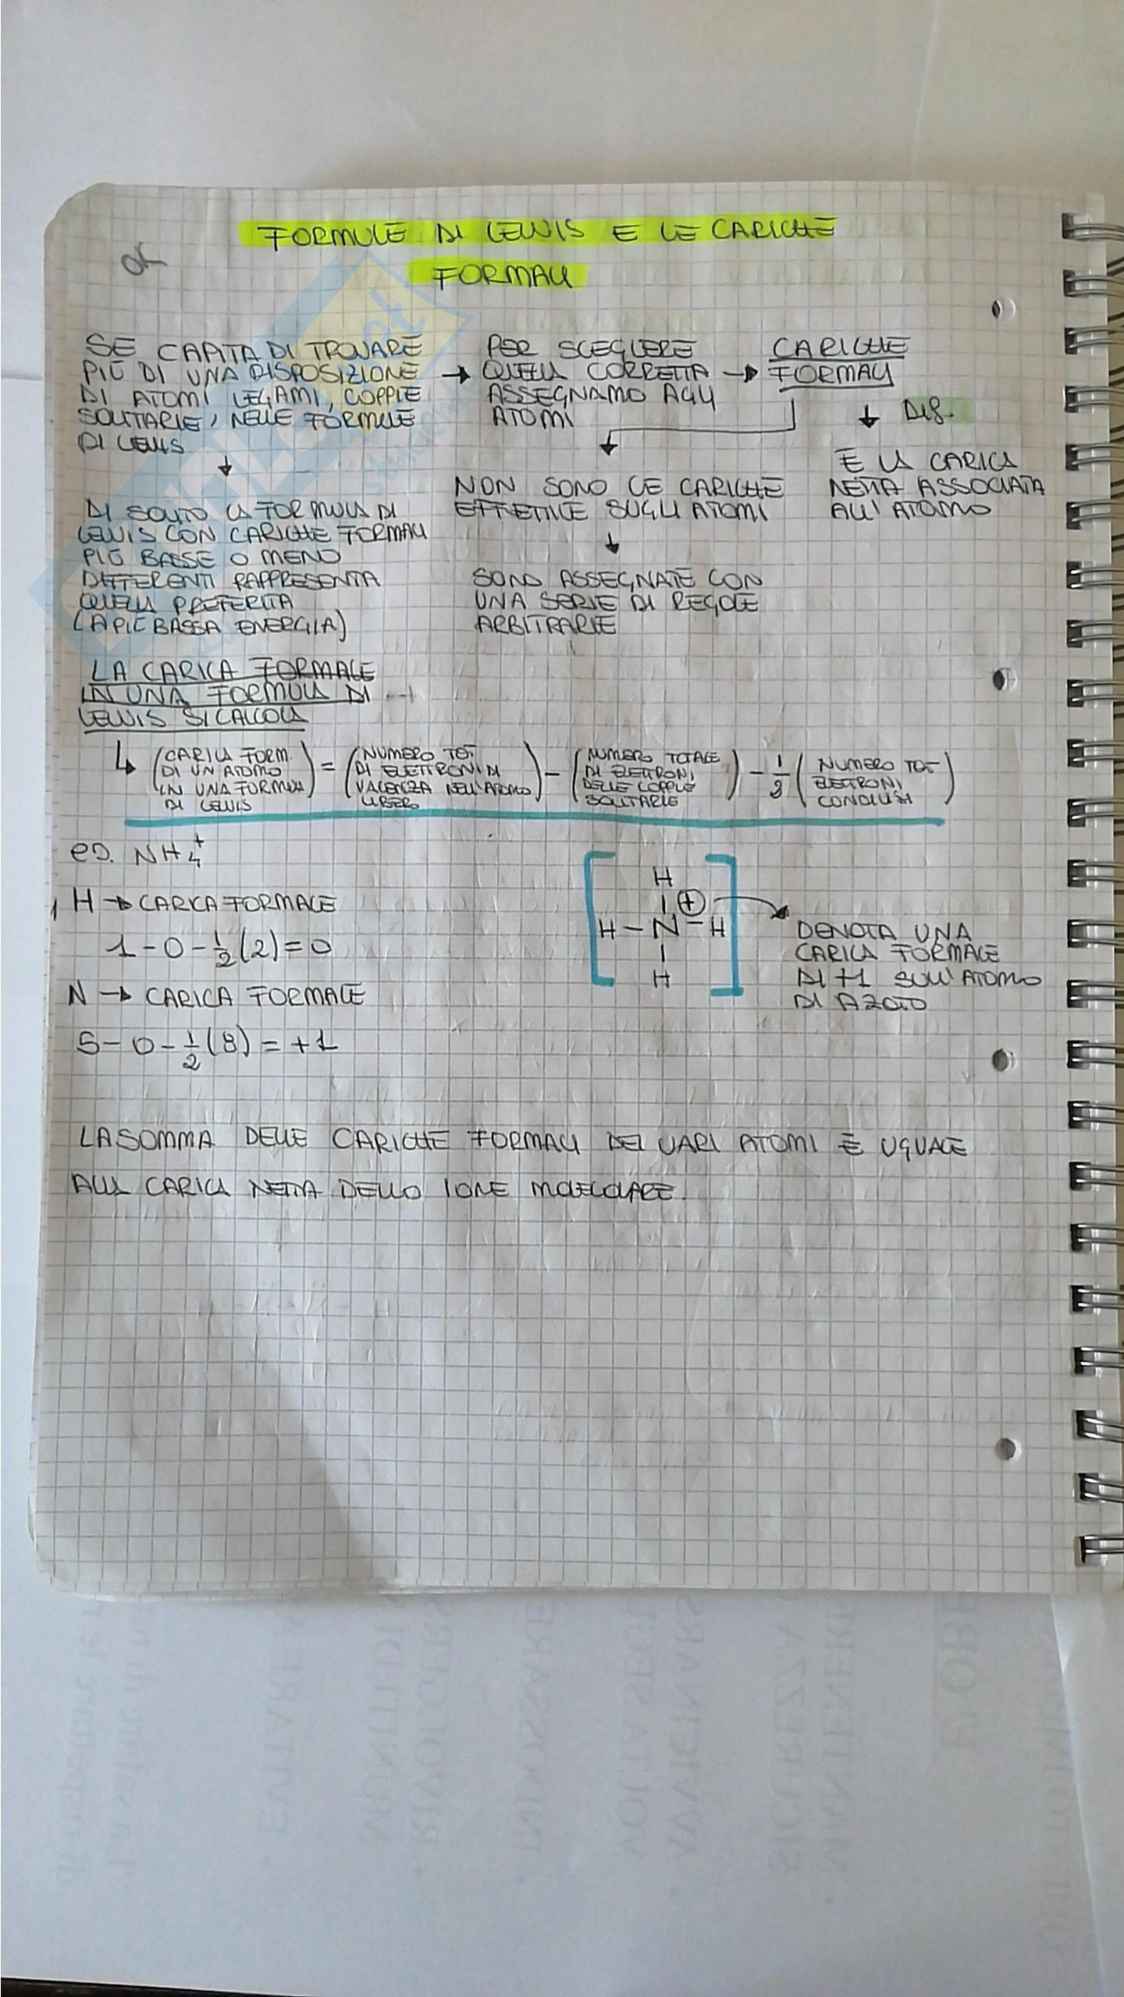 FORMULE DI LEWIS E LE CARICHE
FORMALI
OK
SE CAPITA DI TROVARE
PIÙ DI UNA DISPOSIZIONE →
DI ATOMI LEGAMI, COPPIE
SOLITARIE, NELLE FORMULE
DI LEWIS
↓
DI SOLITO LA FORMULA DI
LEWIS CON CARICHE FORMALI
PIÙ BASSE O MENO
DIFFERENTI RAPPRESENTA
QUELLA PREFERITA
(A PIÙ BASSA ENERGIA)
PER SCEGLIERE
QUELLA CORRETTA →
ASSEGNAMO AGLI
ATOMI
CARICHE
FORMALI
↓ DEF.
È LA CARICA
NETTA ASSOCIATA
ALL'ATOMO
↓
NON SONO LE CARICHE
EFFETTIVE SUGLI ATOMI
↓
SONO ASSEGNATE CON
UNA SERIE DI REGOLE
ARBITRARIE
LA CARICA FORMALE
IN UNA FORMULA DI
LEWIS SI CALCOLA
↳ (CARICA FORM. DI UN ATOMO IN UNA FORMULA DI LEWIS) = (NUMERO TOT. DI ELETTRONI DI VALENZA NELL'ATOMO LIBERO) - (NUMERO TOTALE DI ELETTRONI DELLE COPPIE SOLITARIE) - 1/2 (NUMERO TOT ELETTRONI CONDIVISI)
es. NH₄⁺
H → CARICA FORMALE
1 - 0 - 1/2 (2) = 0
N → CARICA FORMALE
5 - 0 - 1/2 (8) = +1
H
⊕
H - N - H
H
DENOTA UNA
CARICA FORMALE
DI +1 SULL'ATOMO
DI AZOTO
LA SOMMA DELLE CARICHE FORMALI DEI VARI ATOMI È UGUALE
ALLA CARICA NETTA DELLO IONE MOLECOLARE.